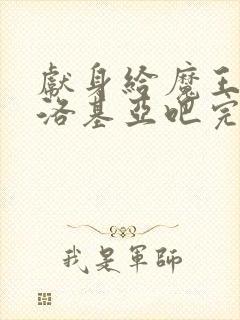 獻身給魔王
洛基亞吧完
我是軍師